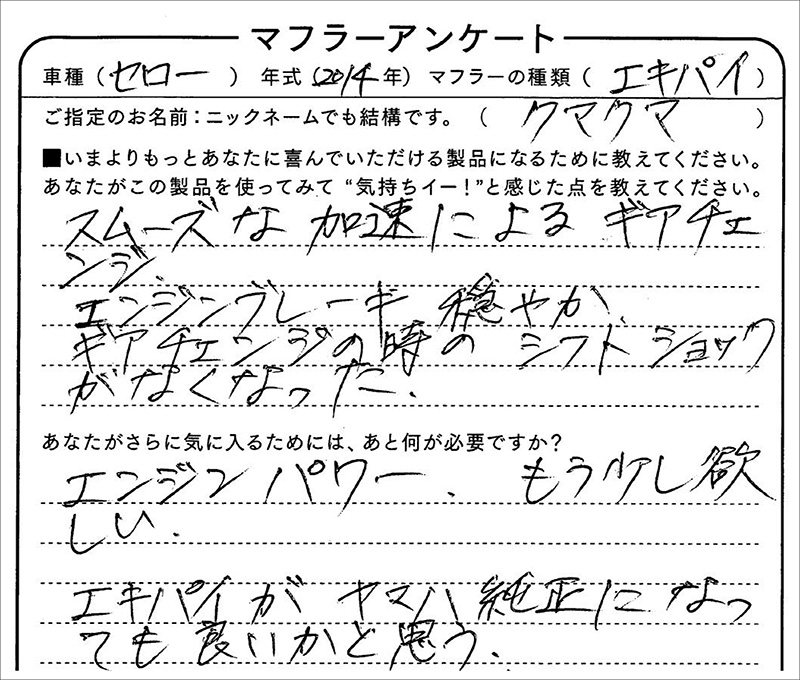 マフラーアンケート
車種（セロー）年式（2014年）マフラーの種類（エキパイ）
ご指定のお名前：ニックネームでも結構です。（クマクマ）
■いまよりもっとあなたに喜んでいただける製品になるために教えてください。
あなたがこの製品を使ってみて“気持ちイー！”と感じた点を教えてください。
スムーズな加速によるギアチェ
ンジ、
エンジンブレーキ穏やか、
ギアチェンジの時のシフトショック
がなくなった.
あなたがさらに気に入るためには、あと何が必要ですか？
エンジンパワー、もう少し欲
しい.
エキパイがヤマハ純正になっ
ても良いかと思う.